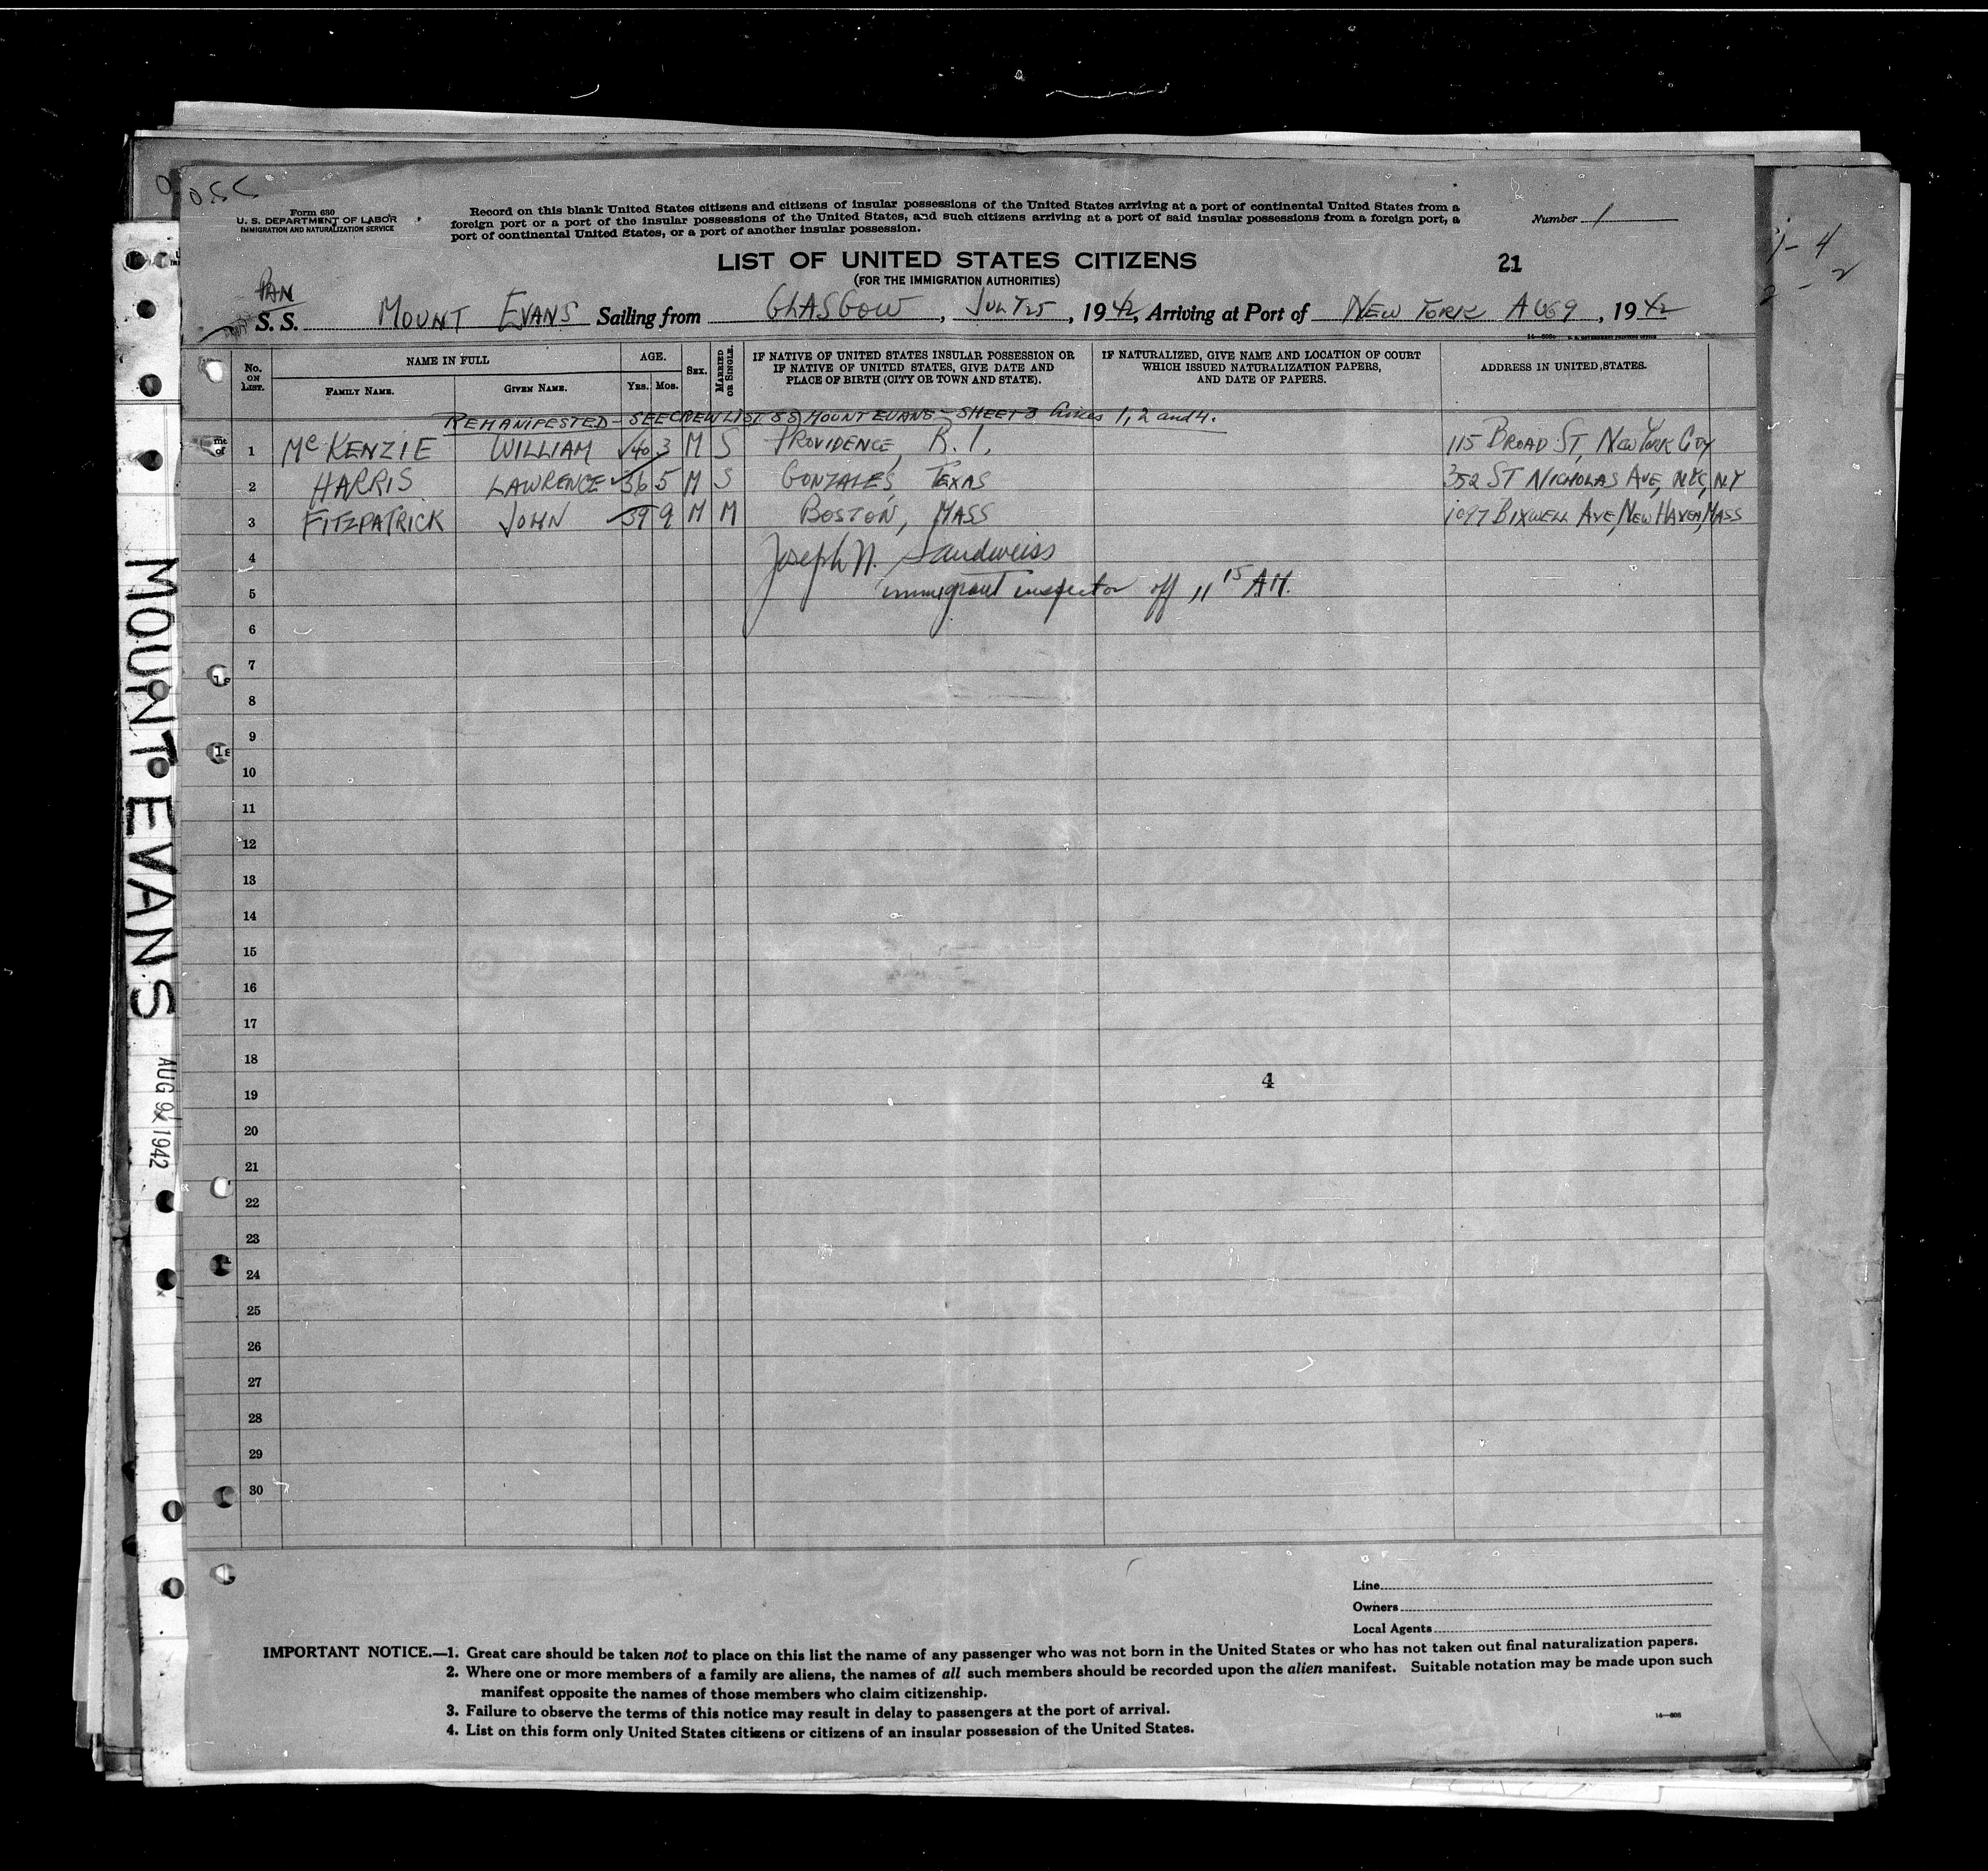 O.S.C
Form 630
U. S. DEPARTMENT OF LABOR
IMMIGRATION AND NATURALIZATION SERVICE
Record on this blank United States citizens and citizens of insular possessions of the United States arriving at a port of continental United States from a
foreign port or a port of the insular possessions of the United States, and such citizens arriving at a port of said insular possessions from a foreign port, a
port of continental United States, or a port of another insular possession.
Number 1
LIST OF UNITED STATES CITIZENS
(FOR THE IMMIGRATION AUTHORITIES)
21
1- 4
2 - 2
PAN
S. S. MOUNT EVANS Sailing from GLASGOW, JULY 25, 1942, Arriving at Port of NEW YORK AUG 9, 1942
No. ON LIST.
NAME IN FULL
FAMILY NAME. GIVEN NAME.
AGE.
YRS. MOS.
SEX.
MARRIED OR SINGLE.
IF NATIVE OF UNITED STATES INSULAR POSSESSION OR
IF NATIVE OF UNITED STATES, GIVE DATE AND
PLACE OF BIRTH (CITY OR TOWN AND STATE).
IF NATURALIZED, GIVE NAME AND LOCATION OF COURT
WHICH ISSUED NATURALIZATION PAPERS,
AND DATE OF PAPERS.
ADDRESS IN UNITED STATES.
REMANIFESTED - SEE CREW LIST SS MOUNT EVANS - SHEET 3 Lines 1, 2 and 4.
1 McKENZIE WILLIAM 40 3 M S PROVIDENCE, R. I. 115 BROAD ST, NEW YORK CITY
2 HARRIS LAWRENCE 36 5 M S GONZALES, TEXAS 352 ST NICHOLAS AVE, NYC, NY
3 FITZPATRICK JOHN 39 9 M M BOSTON, MASS 1097 BIXWELL AVE, NEW HAVEN, MASS
4 Joseph N. Sandweiss
5 immigrant inspector off 11 15 A.M.
6
7
8
9
10
11
12
13
14
15
16
17
18
4
19
20
21
22
23
24
25
26
27
28
29
30
MOUNT EVANS
AUG 9 1942
Line
Owners
Local Agents
IMPORTANT NOTICE.—1. Great care should be taken not to place on this list the name of any passenger who was not born in the United States or who has not taken out final naturalization papers.
2. Where one or more members of a family are aliens, the names of all such members should be recorded upon the alien manifest. Suitable notation may be made upon such
manifest opposite the names of those members who claim citizenship.
3. Failure to observe the terms of this notice may result in delay to passengers at the port of arrival.
4. List on this form only United States citizens or citizens of an insular possession of the United States.
14—808